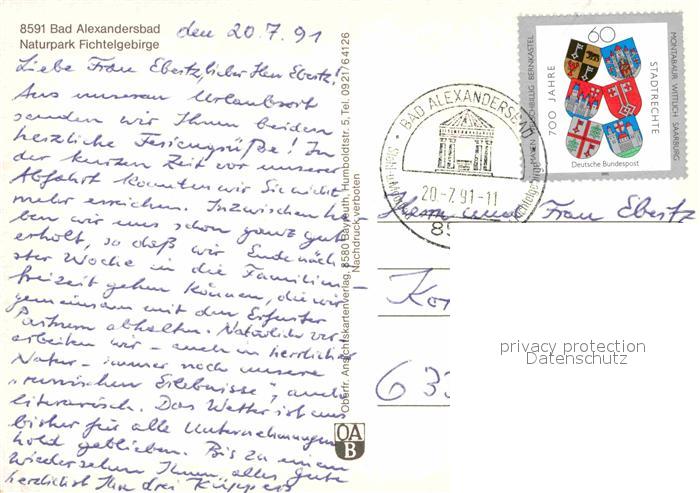 8591 Bad Alexandersbad
Naturpark Fichtelgebirge
den 20.7.91
Liebe Frau Ebertz, lieber Herr Ebertz!
Aus unserem Urlaubsort
senden wir Ihnen beiden
herzliche Feriengrüße! In
der kurzen Zeit vor unserer
Abfahrt konnten wir Sie nicht
mehr erreichen. Inzwischen ha-
ben wir uns schon ganz gut
erholt, so daß wir Ende näch-
ster Woche in die Familien-
freizeit gehen können, die wir
gemeinsam mit den Erfurter
Partnern abhalten. Natürlich ver-
arbeiten wir - auch in herrlicher
Natur - immer noch unsere
"russischen Erlebnisse", auch
literarisch. Das Wetter ist uns
bisher für alle Unternehmungen
hold geblieben. Bis zu einem
Wiedersehen Ihnen alles Gute
herzlichst Ihre drei Küppers
Oberfr. Ansichtskartenverlag, 8580 Bayreuth, Humboldtstr. 5, Tel. 0921/64126
Nachdruck verboten
OA
B
BAD ALEXANDERSBAD
20.-7.91-11
Fichtelgebirge
85
60
700 JAHRE
STADTRECHTE
MAYEN SAARBURG BERNKASTEL
MONTABAUR WITTLICH SAARBURG
Deutsche Bundespost
Herrn und Frau Ebertz
633
privacy protection
Datenschutz